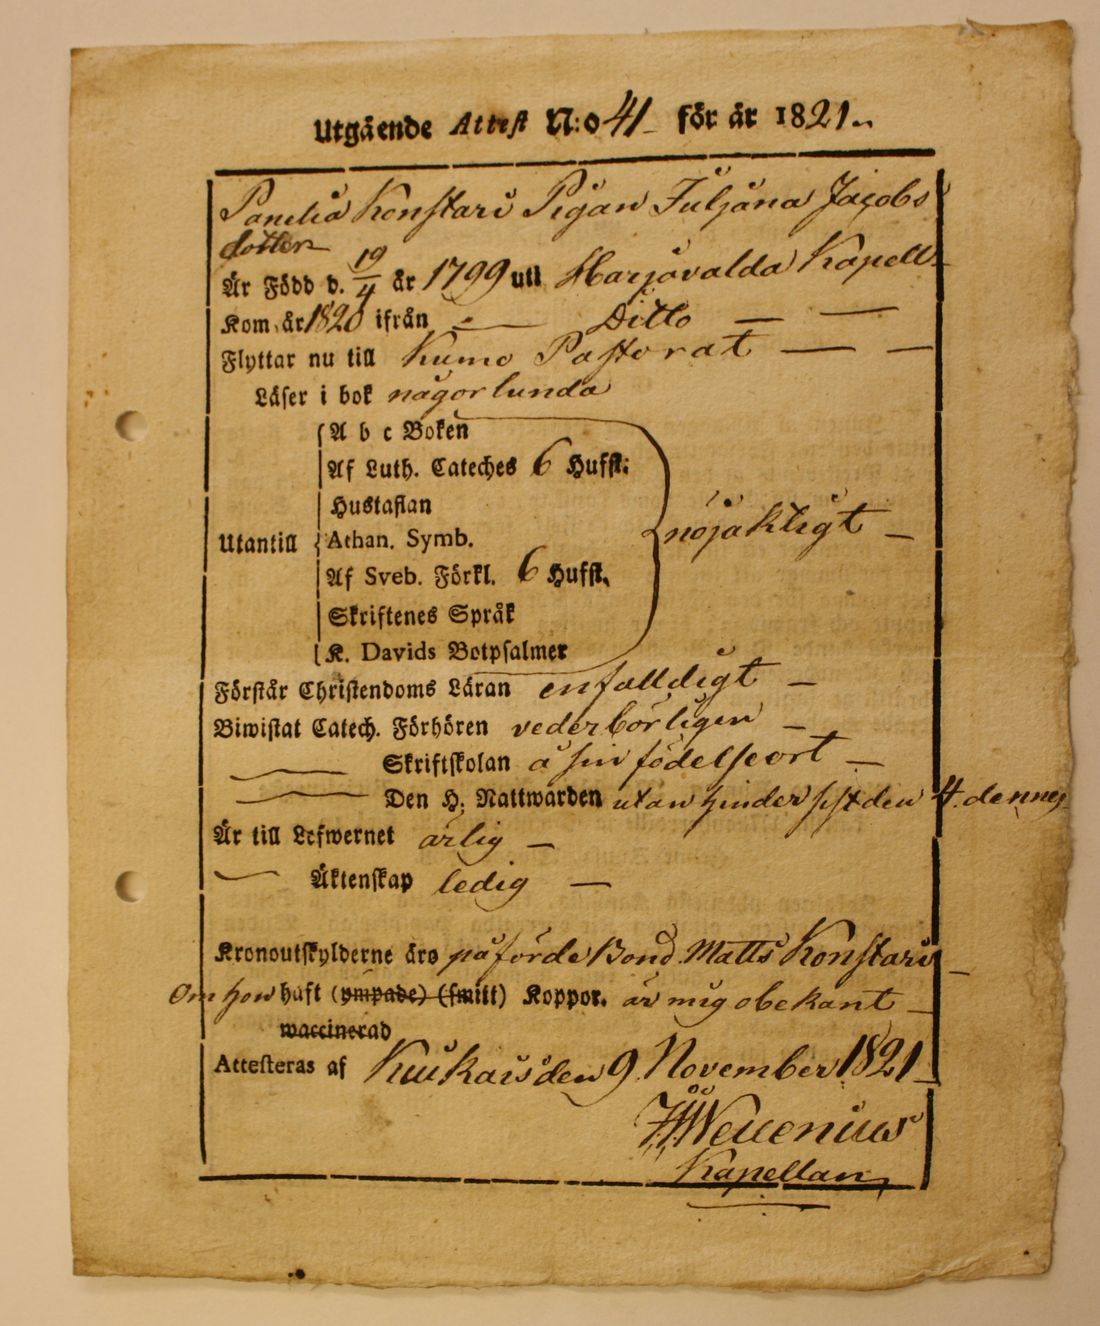 Utgående Attest N:o 41 för år 1821.
Panelia Konstari Pigan Juljana Jacobs
dotter
Är Född d. 19/4 år 1799 uti Harjavalda Kapell
Kom år 1820 ifrån — Ditto — —
Flyttar nu till Kumo Pastorat — —
Läser i bok någorlunda
A b c Boken
Af Luth. Cateches 6 Hufst.
Hustaflan
Utantill Athan. Symb. nöjaktligt —
Af Sveb. Förkl. 6 Hufst.
Skriftenes Språk
K. Davids Botpsalmer
Förstår Christendoms Läran enfalldigt —
Biwistat Catech. Förhören vederbörligen —
— Skriftskolan å sin födelseort —
— Den H. Nattwarden utan hinder sist den 4. dennes
Är till Lefwernet ärlig —
— Äktenskap ledig —
Kronoutskylderne äro påförde Bond. Matts Konstari —
Om hon haft (ympade) (smitt) Koppor. är mig obekant —
waccinerad
Attesteras af Kiukais den 9 November 1821 —
Wellenius
Kapellan